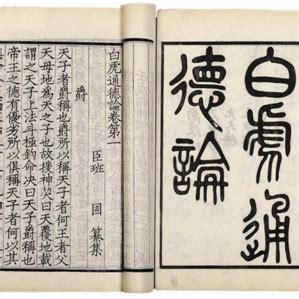 白虎通
德論
白虎通德論卷第一
臣班 固 纂集
爵
天子者爵稱也爵所以稱天子者何王者父
天母地為天之子也故援神契曰天覆地載
謂之天子上法斗極鈎命决曰天子爵稱也
帝王之德有優劣所以俱稱天子者何以其